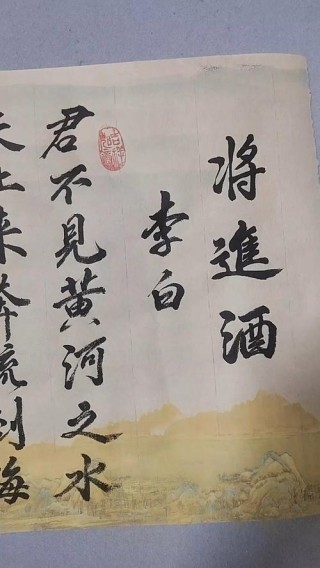 將進酒
李白
君不見黄河之水
天上来奔流到海